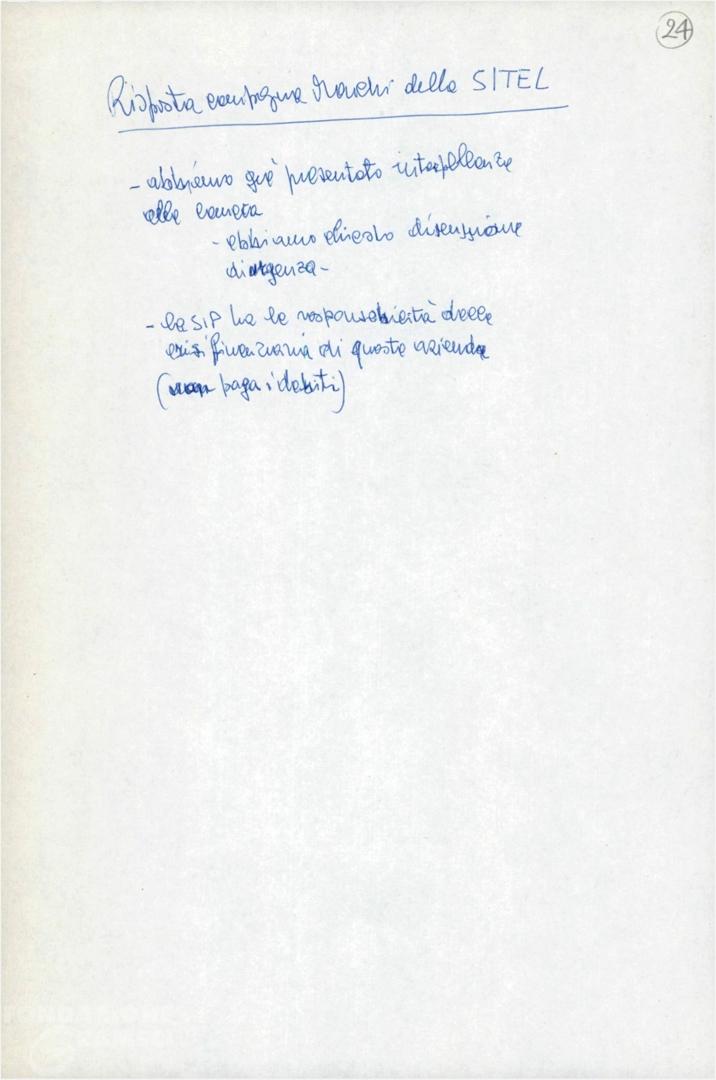 24
Risposta compagna Marchi della SITEL
- abbiamo già presentato interpellanze
alla camera
- abbiamo chiesto discussione
di urgenza -
- la SIP ha la responsabilità della
crisi finanziaria di queste aziende
(non paga i debiti)
FONDAZIONE